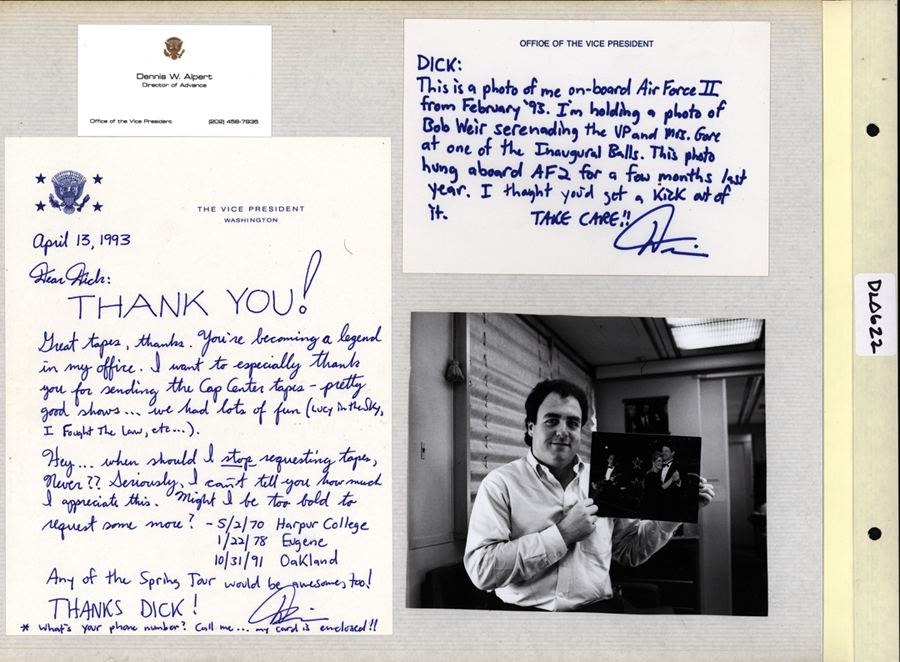 Dennis W. Alpert
Director of Advance
Office of the Vice President (202) 456-7935
THE VICE PRESIDENT
WASHINGTON
April 13, 1993
Dear Dick:
THANK YOU!
Great tapes, thanks. You're becoming a legend
in my office. I want to especially thank
you for sending the Cap Center tapes - pretty
good shows... we had lots of fun (Lucy In the Sky,
I Fought The Law, etc...).
Hey... when should I stop requesting tapes,
Never?? Seriously, I can't tell you how much
I appreciate this. Might I be too bold to
request some more? - 5/2/70 Harpur College
1/22/78 Eugene
10/31/91 Oakland
Any of the Spring Tour would be awesome too!
THANKS DICK!
* What's your phone number? Call me... my card is enclosed!!
OFFICE OF THE VICE PRESIDENT
DICK:
This is a photo of me on-board Air Force II
from February '93. I'm holding a photo of
Bob Weir serenading the VP and Mrs. Gore
at one of the Inaugural Balls. This photo
hung aboard AF2 for a few months last
year. I thought you'd get a kick out of
it. TAKE CARE!!
DLΔ622